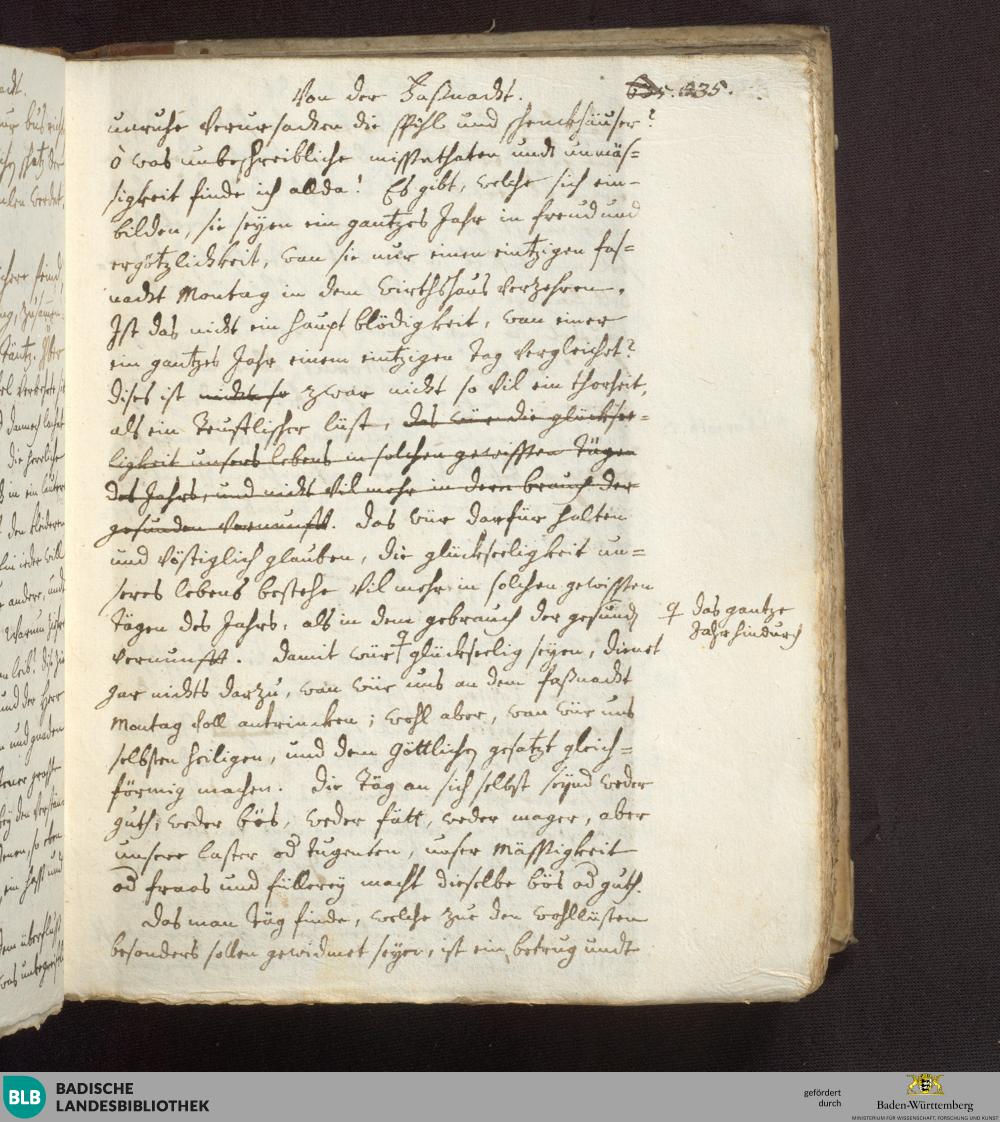 Von der Faßnacht.
635. 1235.
unruhe verursachen die Spihl und schenckhäuser?
ô was unbeschreibliche missethaten undt unmäs-
sigkeit finde ich allda! Es gibt, welche sich ein-
bilden, sie seyen ein gantzes Jahr in freud und
ergötzlichkeit, wan sie nur einen eintzigen fas-
nacht Montag in dem wirthshaus verzehren.
Ist das nicht ein haupt blödigkeit, wan einer
ein gantzes Jahr einem eintzigen tag vergleichet?
dises ist nicht so zwar nicht so vil ein thorheit,
als ein Teufflischer lüst, das wür die glücksee-
ligkeit unsers lebens in solchen gewissen tägen
des Jahrs, und nicht vil mehr in dem brauch der
gesunden vernunfft. das wür darfür halten
und vöstiglich glauben, die glückseeligkeit un-
seres lebens bestehe vil mehr in solchen gewissen
tägen des Jahrs, als in dem gebrauch der gesund
vernunfft. damit wür glückseelig seyen, dienet
das gantze
Jahr hindurch
gar nichts darzu, wan wür uns an dem faßnacht
Montag voll antrincken; wohl aber, wan wür uns
selbsten heiligen, und dem göttlichen gesatzt gleich-
förmig machen. die täg an sich selbst seynd weder
guth, weder bös, weder fätt, weder mager, aber
unsere laster od tugenten, unser Mässigkeit
od fraas und füllerey macht dieselbe bös od guth.
Das man täg finde, welche zue den wohllüsten
besonders sollen gewidmet seyen, ist ein betrug undt
BLB
BADISCHE
LANDESBIBLIOTHEK
gefördert
durch
Baden-Württemberg
MINISTERIUM FÜR WISSENSCHAFT, FORSCHUNG UND KUNST